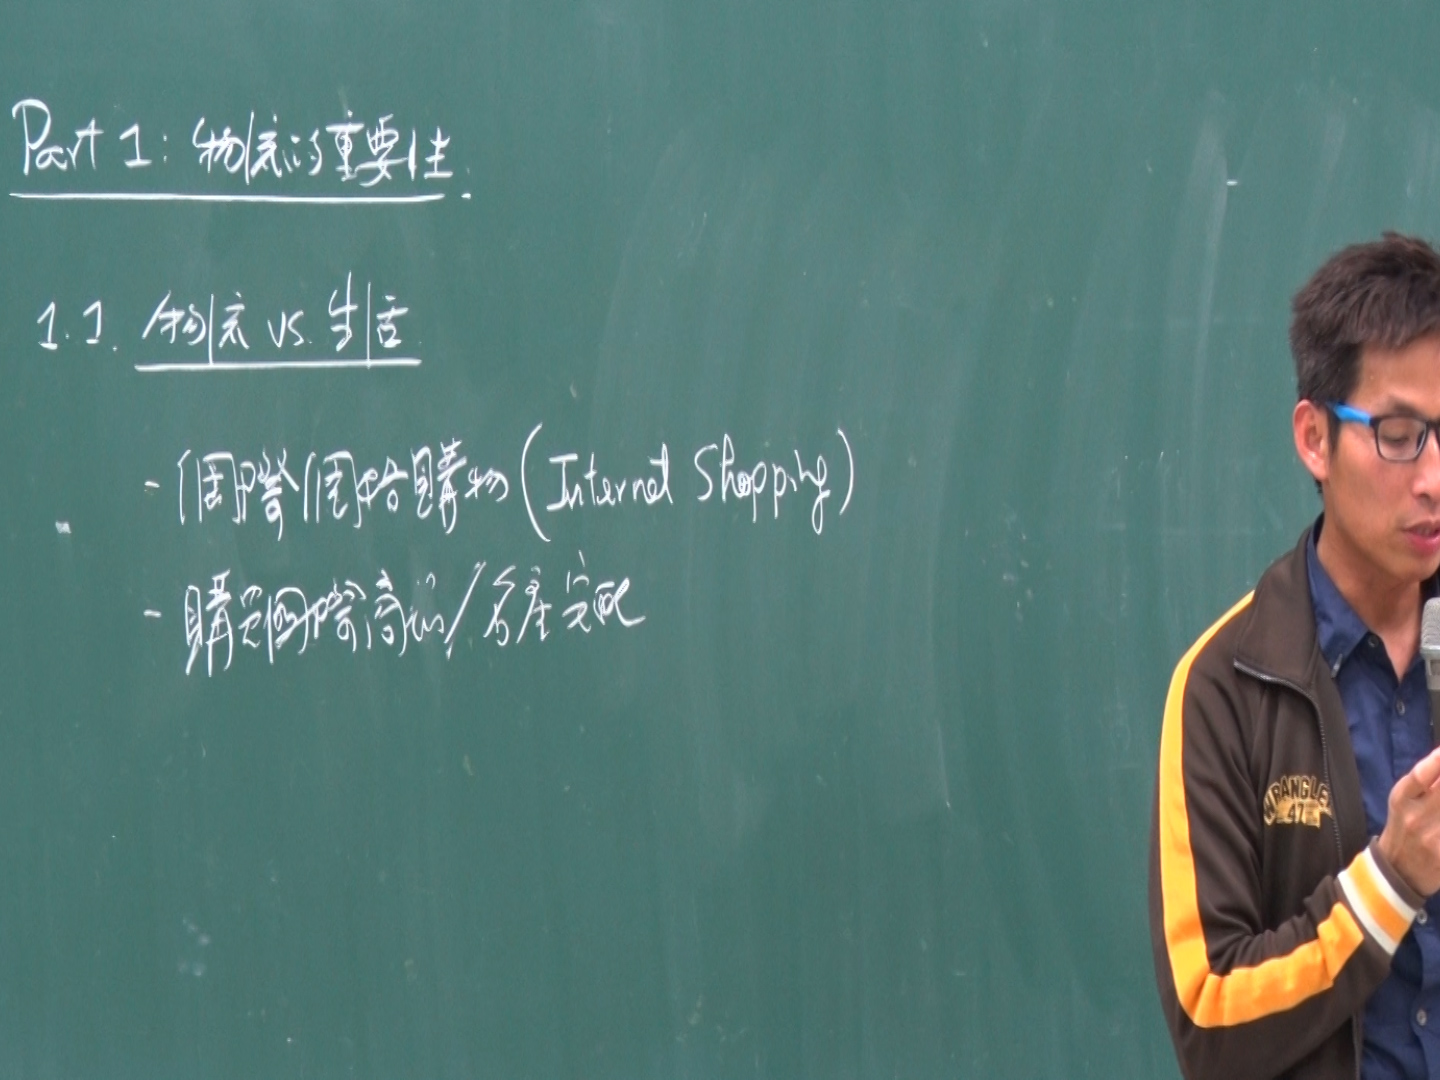 Part 1: 物流的重要性.
1.1. 物流 vs. 生活
- 國際網路購物 (Internet Shopping)
- 購買國際商品/名產宅配
WRANGLER
47